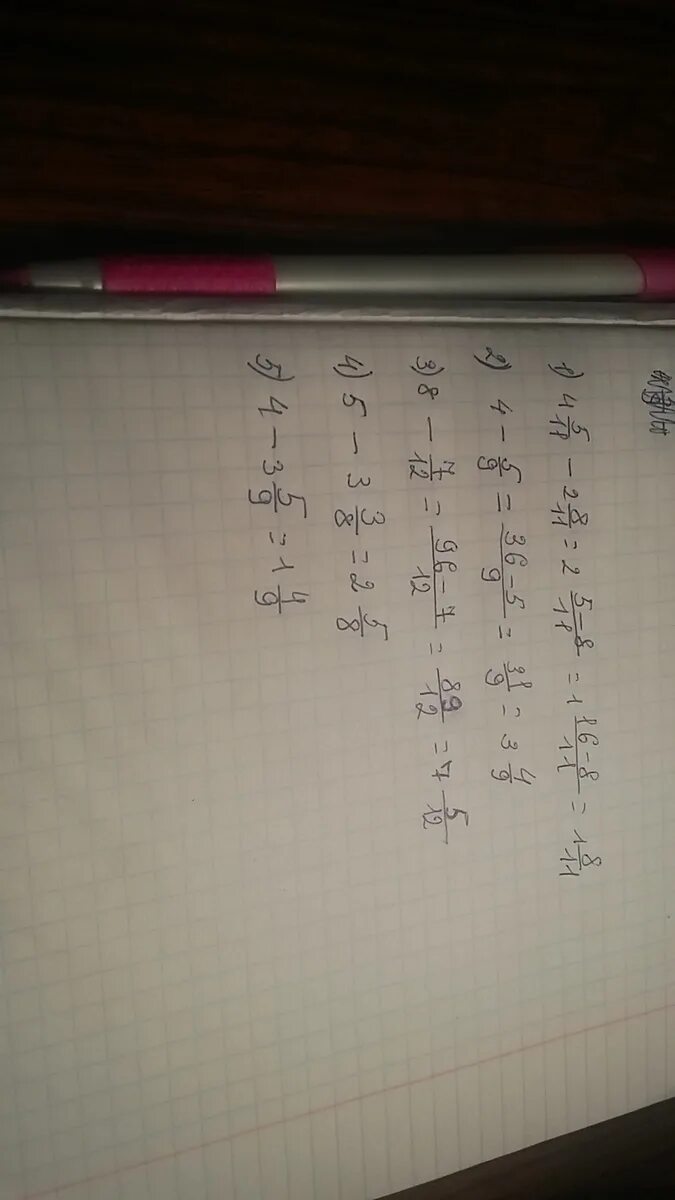 1) 4 5/11 - 2 8/11 = 2 (5-8)/11 = 1 (16-8)/11 = 1 8/11
2) 4 - 5/9 = (36-5)/9 = 31/9 = 3 4/9
3) 8 - 7/12 = (96-7)/12 = 89/12 = 7 5/12
4) 5 - 3 3/8 = 2 5/8
5) 4 - 3 5/9 = 1 4/9